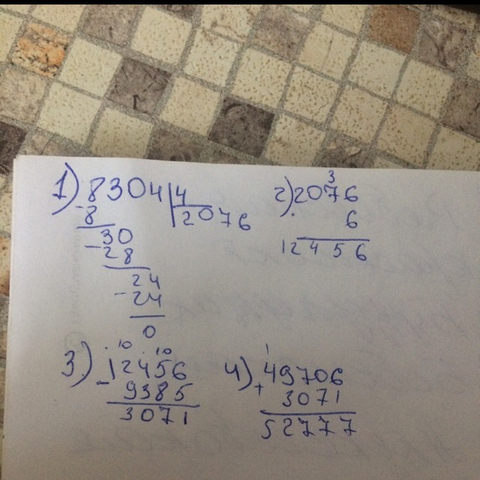 1) 8304 | 4
- 8
2076
30
- 28
24
- 24
0
2) 2076
3
· 6
12456
3) 12456
· 10 · 10
- 9385
3071
4) 49706
1
+ 3071
52777